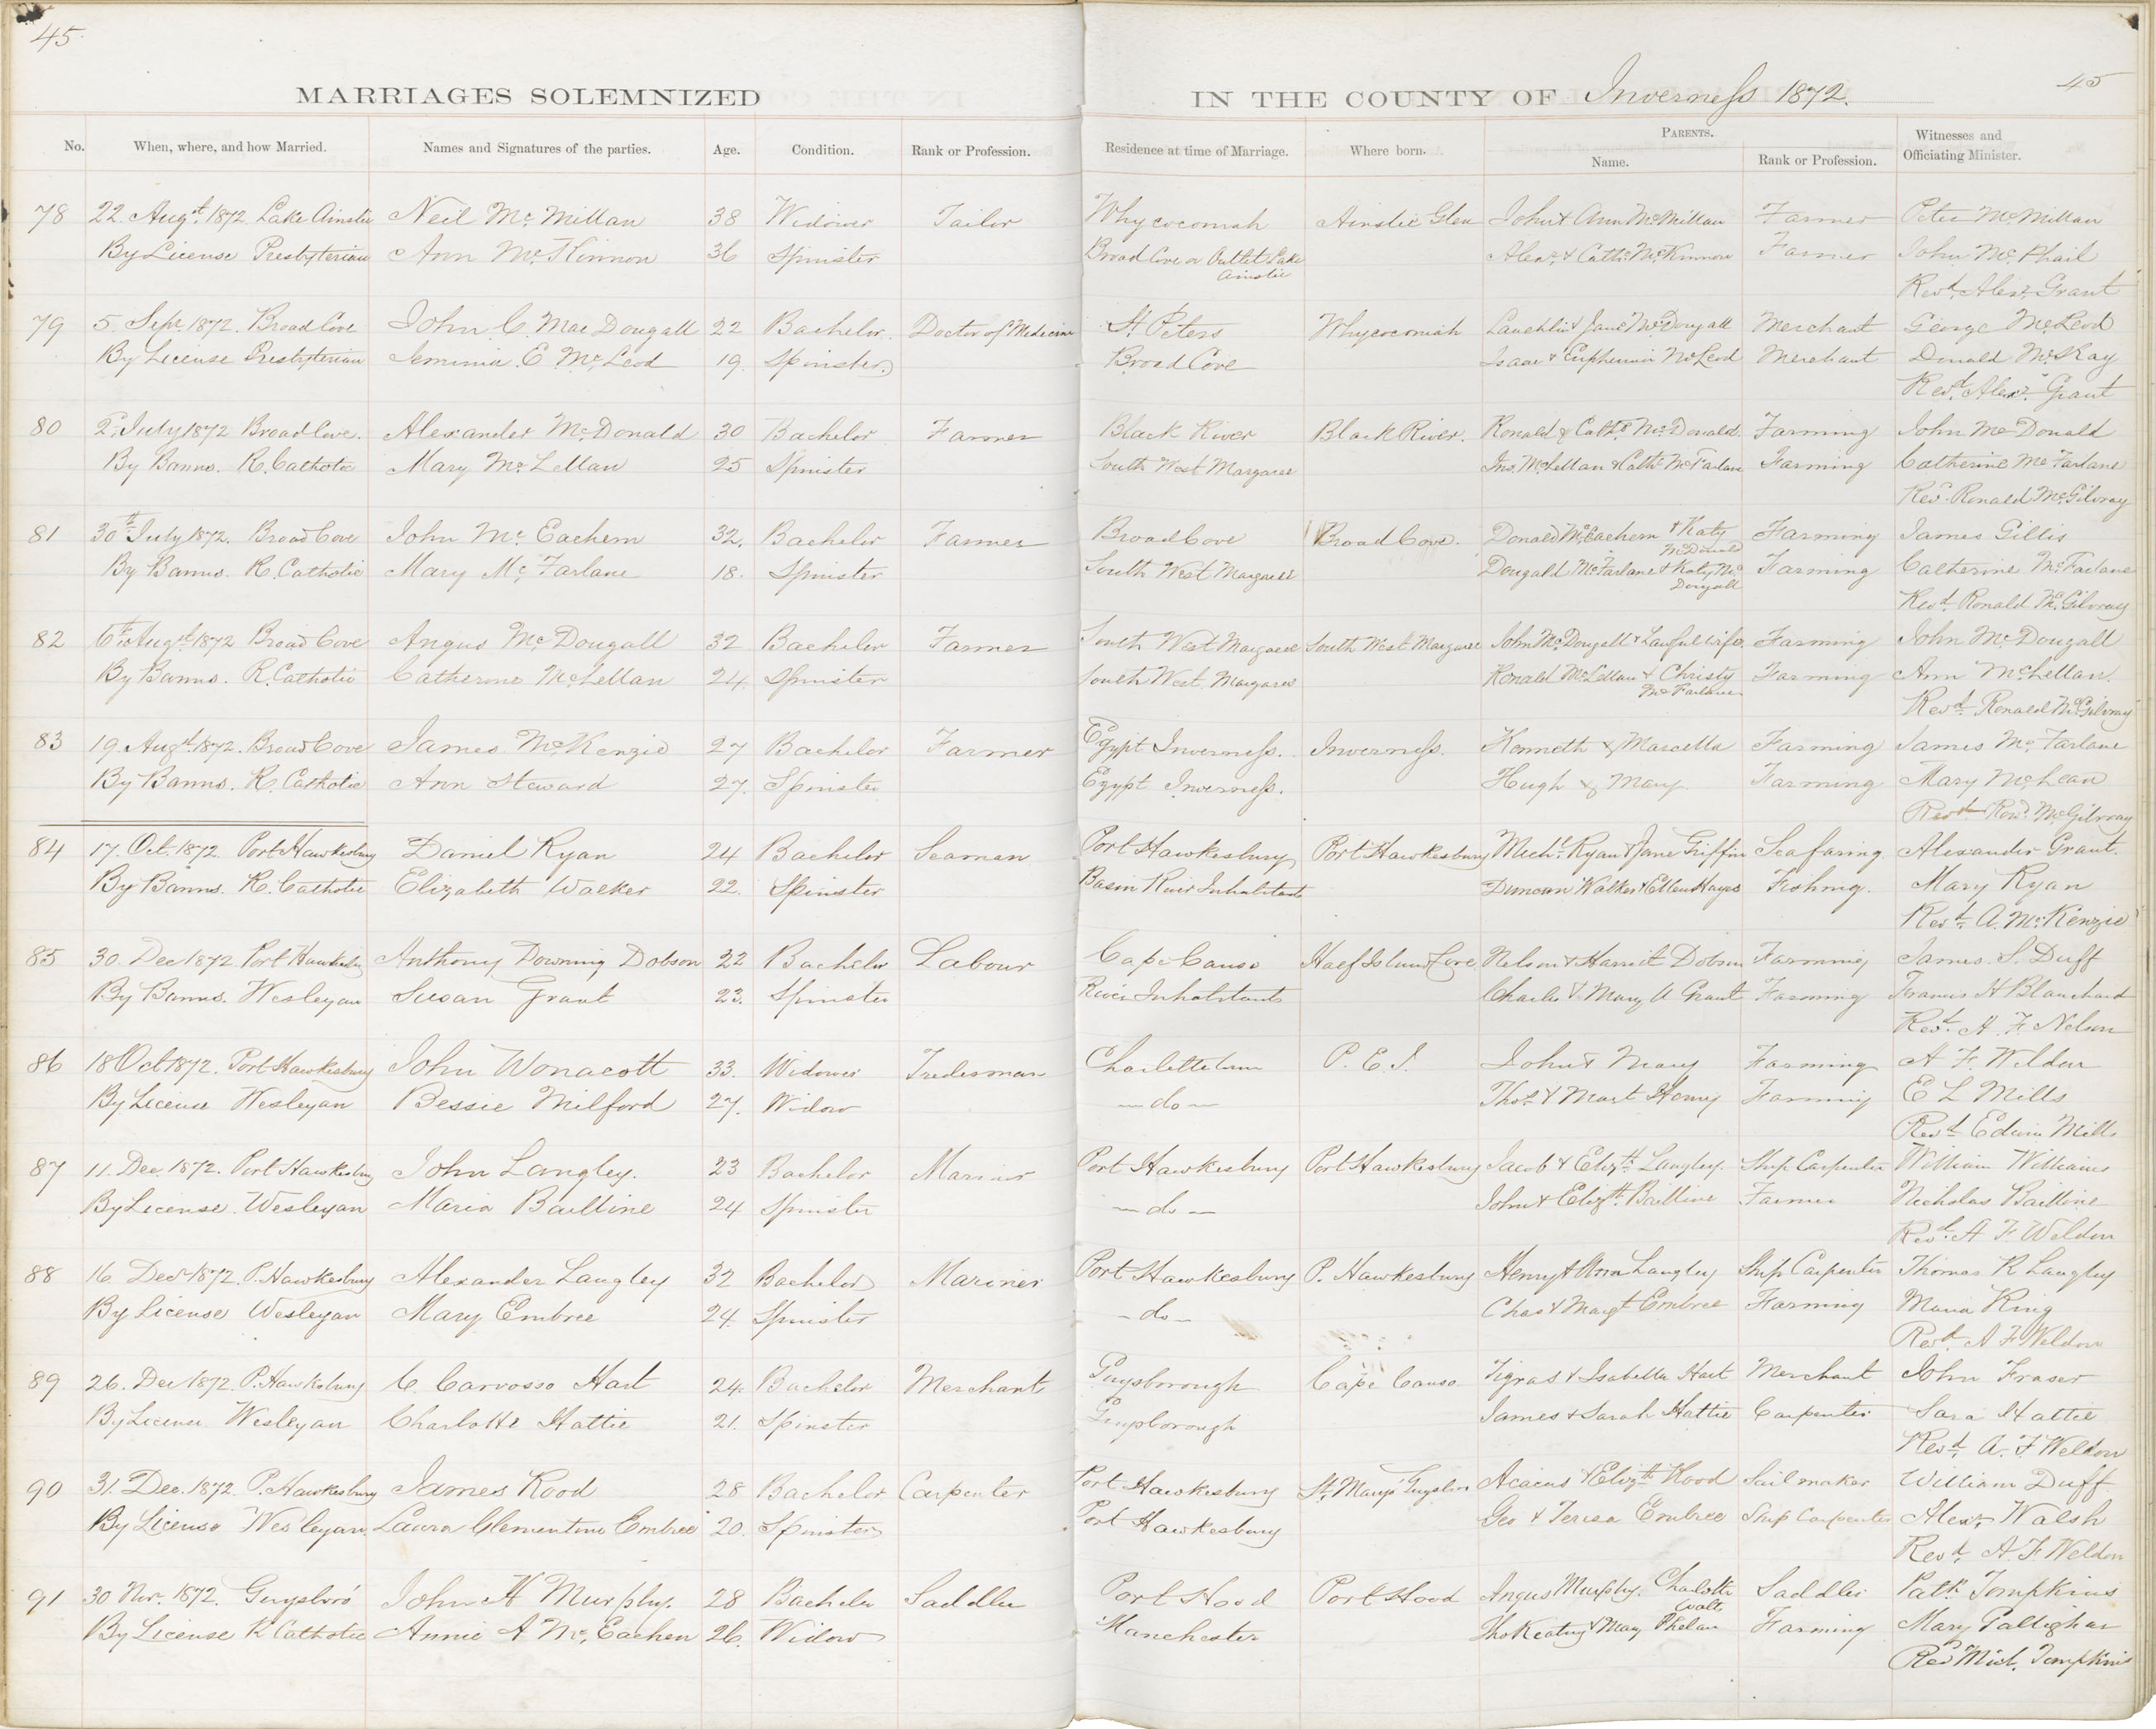 45
45
MARRIAGES SOLEMNIZED IN THE COUNTY OF Inverness 1872.
No. When, where, and how Married. Names and Signatures of the parties. Age. Condition. Rank or Profession. Residence at time of Marriage. Where born. PARENTS. Name. Rank or Profession. Witnesses and Officiating Minister.
78 22. Augst. 1872 Lake Ainslie Neil Mc. Millan 38 Widower Tailor Whycocomah Ainslie Glen John & Ann McMillan Farmer Peter McMillan
By License Presbyterian Ann Mc. Kinnon 36 Spinster Broad Cove or Outlet Lake Ainslie Alexr. & Cathe. McKinnon Farmer John Mc. Phail
Revd. Alexr. Grant
79 5. Sept 1872. Broad Cove John C. Mac Dougall 22 Bachelor. Doctor of Medicine St. Peters Whycocomah Lauchlin & Jane McDougall Merchant George McLeod
By License Presbyterian Jemima. E. Mc. Leod 19. Spinster. Broad Cove Isaac & Euphemia McLeod Merchant Donald McKay
Revd. Alexr. Grant
80 2. July 1872 Broad Cove. Alexander Mc. Donald 30 Bachelor Farmer Black River Black River. Ronald & Cathe. McDonald. Farming John McDonald
By Banns. R. Catholic Mary Mc. Lellan 25 Spinster South West Margaree Jno. McLellan & Cathe. McFarlane Farming Catherine McFarlane
Revd. Ronald McGilvray
81 30th July 1872. Broad Cove John Mc. Eachern 32. Bachelor Farmer Broad Cove Broad Cove. Donald McEachern & Katy McDonald Farming James Gillis
By Banns. R. Catholic Mary Mc. Farlane 18. Spinster South West Margaree Dougald McFarlane & Katy McDougall Farming Catherine McFarlane
Revd. Ronald McGilvray
82 6th Augst 1872 Broad Cove Angus McDougall 32 Bachelor Farmer South West Margaree South West Margaree John McDougall & Lawful wife. Farming John McDougall
By Banns. R. Catholic Catherine McLellan 24. Spinster South West Margaree Ronald McLellan & Christy McFarlane Farming Ann McLellan.
Revd. Ronald McGilvray
83 19. Augt. 1872. Broad Cove James McKenzie 27 Bachelor Farmer Egypt Inverness. Inverness. Kenneth & Marcella Farming James McFarlane
By Banns. R. Catholic Ann Steward 27. Spinster Egypt Inverness. Hugh & Mary Farming Mary McLean
Revd. Rond. McGilvray
84 17. Oct. 1872. Port Hawkesbury Daniel Ryan 24 Bachelor Seaman Port Hawkesbury Port Hawkesbury Michl. Ryan & Jane Griffin Seafaring Alexander Grant.
By Banns. R. Catholic Elizabeth Walker 22. Spinster Basin River Inhabitants Duncan Walker & Ellen Hayes Fishing. Mary Ryan
Revd. A. McKenzie
85 30. Dec 1872. Port Hawkesby Anthony Downing Dobson 22 Bachelor Labour Cape Canso Half Island Cove Nelson & Harriet Dobson Farming James. S. Duff
By Banns. Wesleyan Susan Grant 23. Spinster River Inhabitants Charles & Mary A Grant Farming Francis H Blanchard
Revd. H. F. Nelson
86 18 Oct 1872. Port Hawkesbury John Wonacott 33. Widower Tredesman Charlettetown P. E. I. John & Mary Farming A F. Weldon
By License Wesleyan Bessie Milford 27. Widow — do — Thos. & Mart Henry Farming E L Mills
Revd. Edwin Mills
87 11. Dec. 1872. Port Hawkesbury John Langley. 23 Bachelor Mariner Port Hawkesbury Port Hawkesbury Jacob & Elizth. Langley. Ship Carpenter William Williams
By License. Wesleyan Maria Bailline 24 Spinster — do — John & Elizth. Bailline Farmer Nicholas Bailline
Revd. A F Weldon
88 16. Decr 1872. P. Hawkesbury Alexander Langley 32 Bachelor Mariner Port Hawkesbury P. Hawkesbury Henry & Ann Langley Ship Carpenter Thomas R Langley
By License Wesleyan Mary Embree 24. Spinster – do – Chas & Margt Embree Farming Maria King
Revd. A F Weldon
89 26. Dec 1872. P. Hawkesbury C. Carvosso Hart 24. Bachelor Merchant Guysborough Cape Canso Tigras & Isabella Hart Merchant John Fraser
By License. Wesleyan Charlotte Hattie 21. Spinster Guysborough James & Sarah Hattie Carpenter Sara Hattie
Revd. A. F Weldon
90 31. Dec. 1872. P. Hawkesbury James Rood 28 Bachelor Carpenter Port Hawkesbury St. Mary's Guysbro Acacus & Elizth. Rood Sail maker William Duff
By License Wesleyan Laura Clementine Embree 20. Spinster Port Hawkesbury Geo & Teresa Embree Ship Carpenter Alexr. Walsh
Revd. A. F Weldon
91 30 Nov. 1872. Guysboro' John H Murphy. 28 Bachelor Saddler Port Hood Port Hood Angus Murphy. Charlotte Saddler Patk. Tompkins
By License R Catholic Annie A McEachen 26. Widow Manchester Tho Keating & Mary Phelan Farming Mary Gallighar
Revd Mich. Tompkins